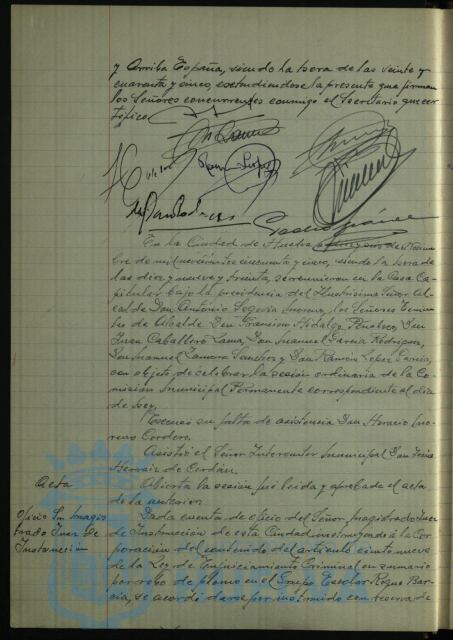 y Arriba España, siendo la hora de las veinte y
cuarenta y cinco, extendiendose la presente que firman
los Señores concurrentes conmigo el Secretario que cer
tifico
En la Ciudad de Huelva a de
bre de mil novecientos cincuenta y cinco, siendo la hora de
las diez y nueve y treinta, se reunieron en la Casa Ca-
pitular bajo la presidencia del Ilustrisimo Señor Al
calde Don Antonio Segovia Moreno, los Señores Tenien
tes de Alcalde Don Francisco Hidalgo Don
Juan Caballero Don Manuel Garcia Rodriguez,
Don Manuel Zamora Sanchez y Don Ramón Lopez Garcia,
con objeto de celebrar la sesión ordinaria de la Co-
misión Municipal Permanente correspondiente al dia
de hoy.
Excusó su falta de asistencia Don Horacio Mo
reno Cordero.
Asistió el Señor Interventor Municipal Don
de
Acta
Abierta la sesión fué leida y aprobada el acta
de la anterior
Oficio Sr. Magis
trado Juez de
Instrucción
Dada cuenta de oficio del Señor Magistrado Juez
de Instrucción de esta Ciudad instruyendo a la Cor
poración del contenido del articulo ciento nueve
de la Ley de Enjuiciamiento Criminal en sumario
por robo de plomo en el Grupo Escolar Roque Bar
cia, se acordó darse por instruido con reserva de